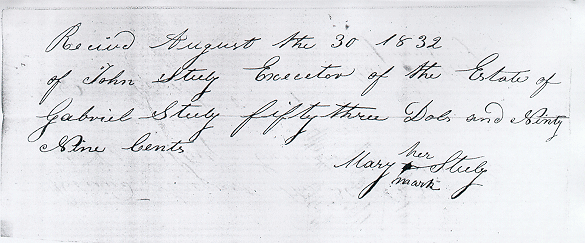 Recived August the 30 1832
of John Stuly Execetor of the Estate of
Gabriel Stuly fifty three Dols and Ninty
Nine Cents
Mary her Stuly
mark